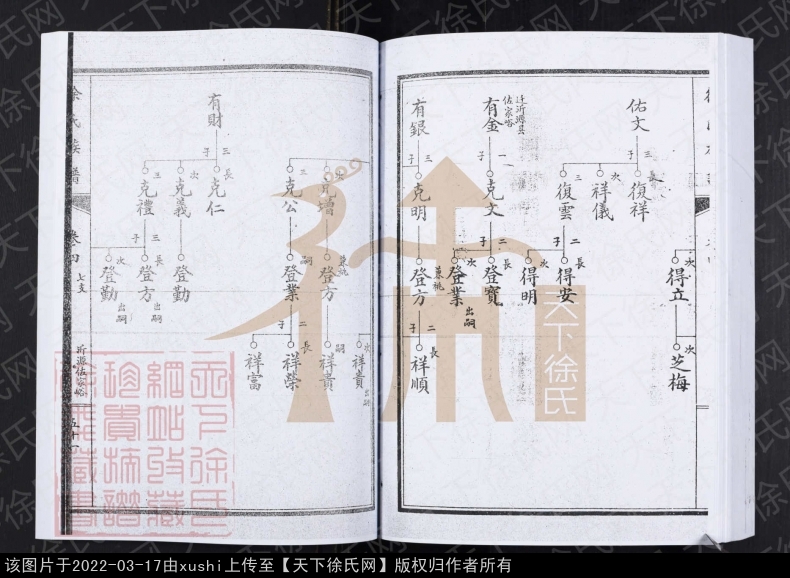 次
得立
次
芝梅
佑文
三子
長
復祥
次
祥儀
三
復雲
二子
長
得安
次
得明
有金
迁沂源县
佐家峪
一子
克文
二子
長
登寶
次
登業
出嗣
有銀
三子
長
克明
兼祧
登方
二子
長
祥順
次
祥貴
出嗣
次
兼祧
登方
嗣
祥貴
三
克公
嗣
登業
二子
長
祥榮
祥富
有財
三子
長
克仁
次
克義
登勤
三
克禮
二子
長
登方
出嗣
次
登勤
出嗣
徐氏族譜
卷四
七支
沂源佐家峪
五十一
天下徐氏
天下徐氏网
该图片于2022-03-17由xushi上传至【天下徐氏网】版权归作者所有